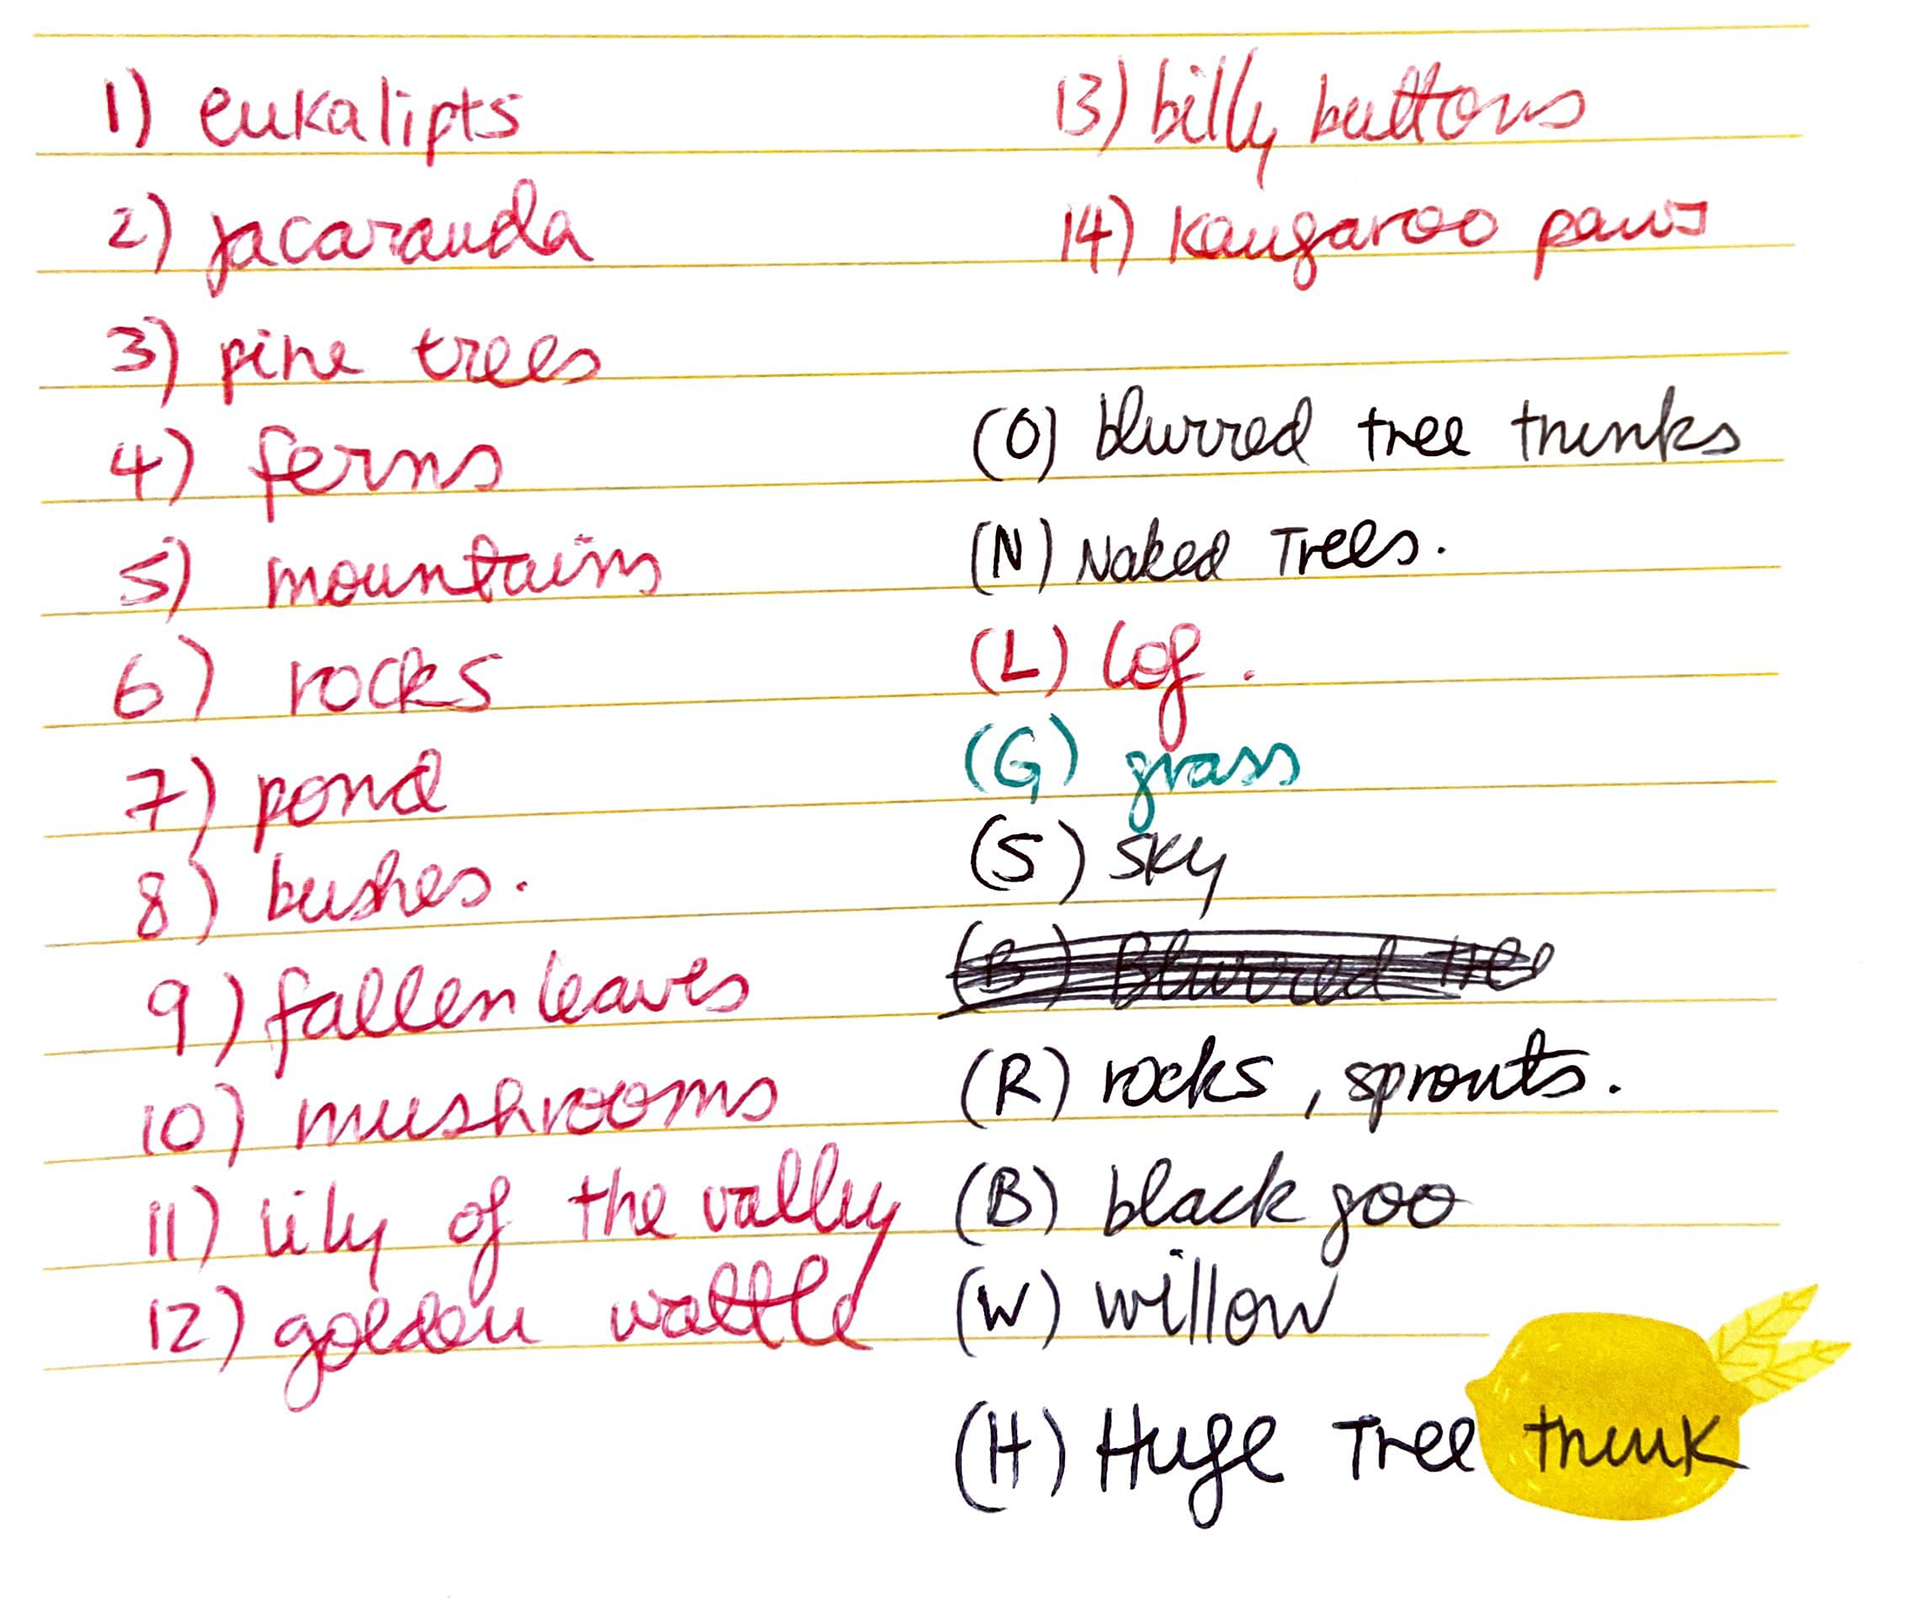 1) eukalipts
2) jacaranda
3) pine trees
4) ferns
5) mountains
6) rocks
7) pond
8) bushes.
9) fallen leaves
10) mushrooms
11) lily of the valley
12) golden wattle
13) billy buttons
14) kangaroo paws
(O) blurred tree trunks
(N) Naked Trees.
(L) log.
(G) grass
(S) sky
(B) Blurred tree
(R) rocks, sprouts.
(B) black goo
(W) willow
(H) Huge Tree trunk